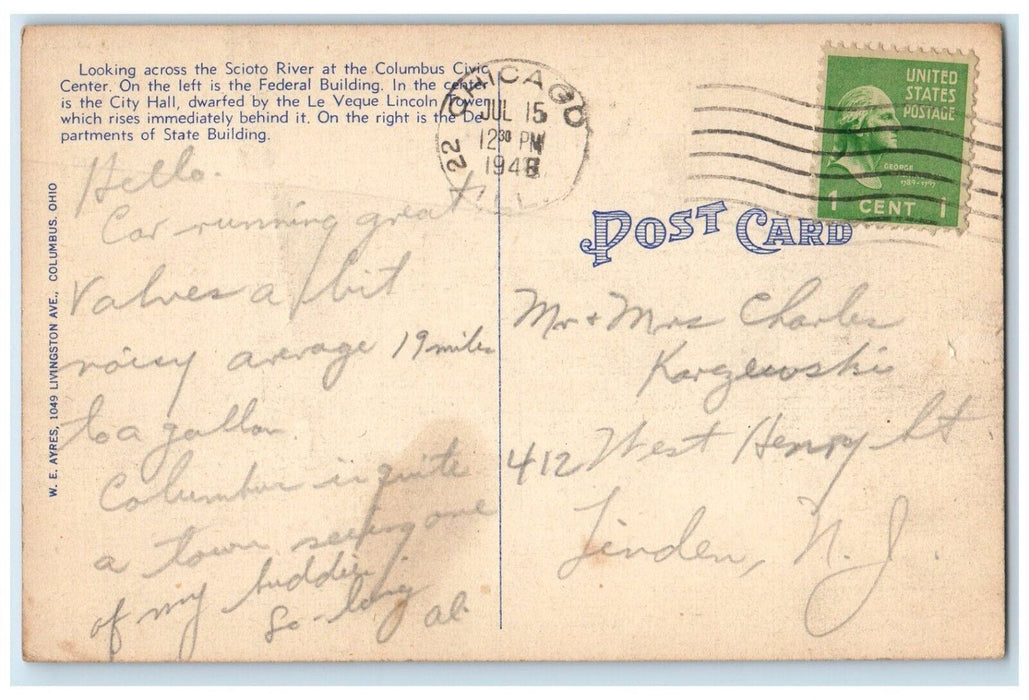 Looking across the Scioto River at the Columbus Civic
Center. On the left is the Federal Building. In the center
is the City Hall, dwarfed by the Le Veque Lincoln Tower
which rises immediately behind it. On the right is the De-
partments of State Building.
W. E. AYRES, 1049 LIVINGSTON AVE., COLUMBUS, OHIO
Hello.
Car running great
Valves a bit
noisy average 19 miles
to a gallon
Columbus is quite
a town seeing one
of my buddies.
So-long
Al.
CHICAGO
22
JUL 15
12 30 PM
1948
ILL.
UNITED
STATES
POSTAGE
GEORGE
1789-1797
1 CENT 1
POST CARD
Mr + Mrs Charles
Karzewski
412 West Henry St
Linden, N.J.